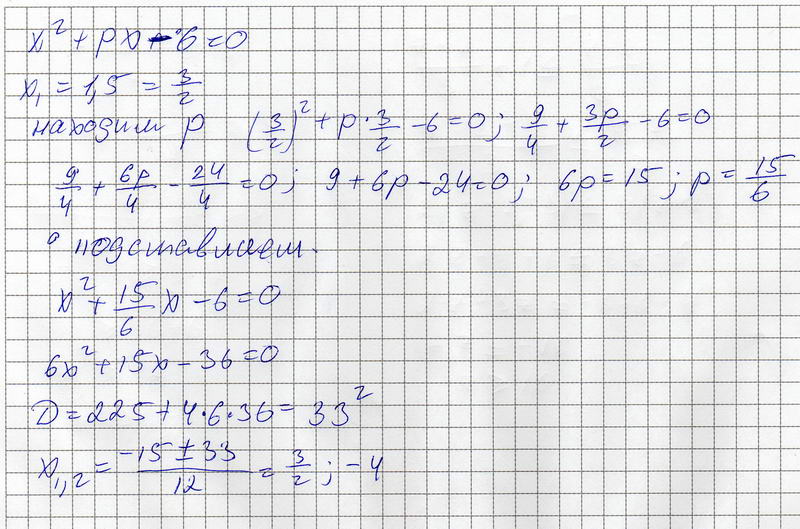 x² + px - 6 = 0
x₁ = 1,5 = 3/2
находим p (3/2)² + p · 3/2 - 6 = 0; 9/4 + 3p/2 - 6 = 0
9/4 + 6p/4 - 24/4 = 0; 9 + 6p - 24 = 0; 6p = 15; p = 15/6
подставляем.
x² + 15/6 x - 6 = 0
6x² + 15x - 36 = 0
D = 225 + 4·6·36 = 33²
x₁,₂ = (-15 ± 33)/12 = 3/2; -4